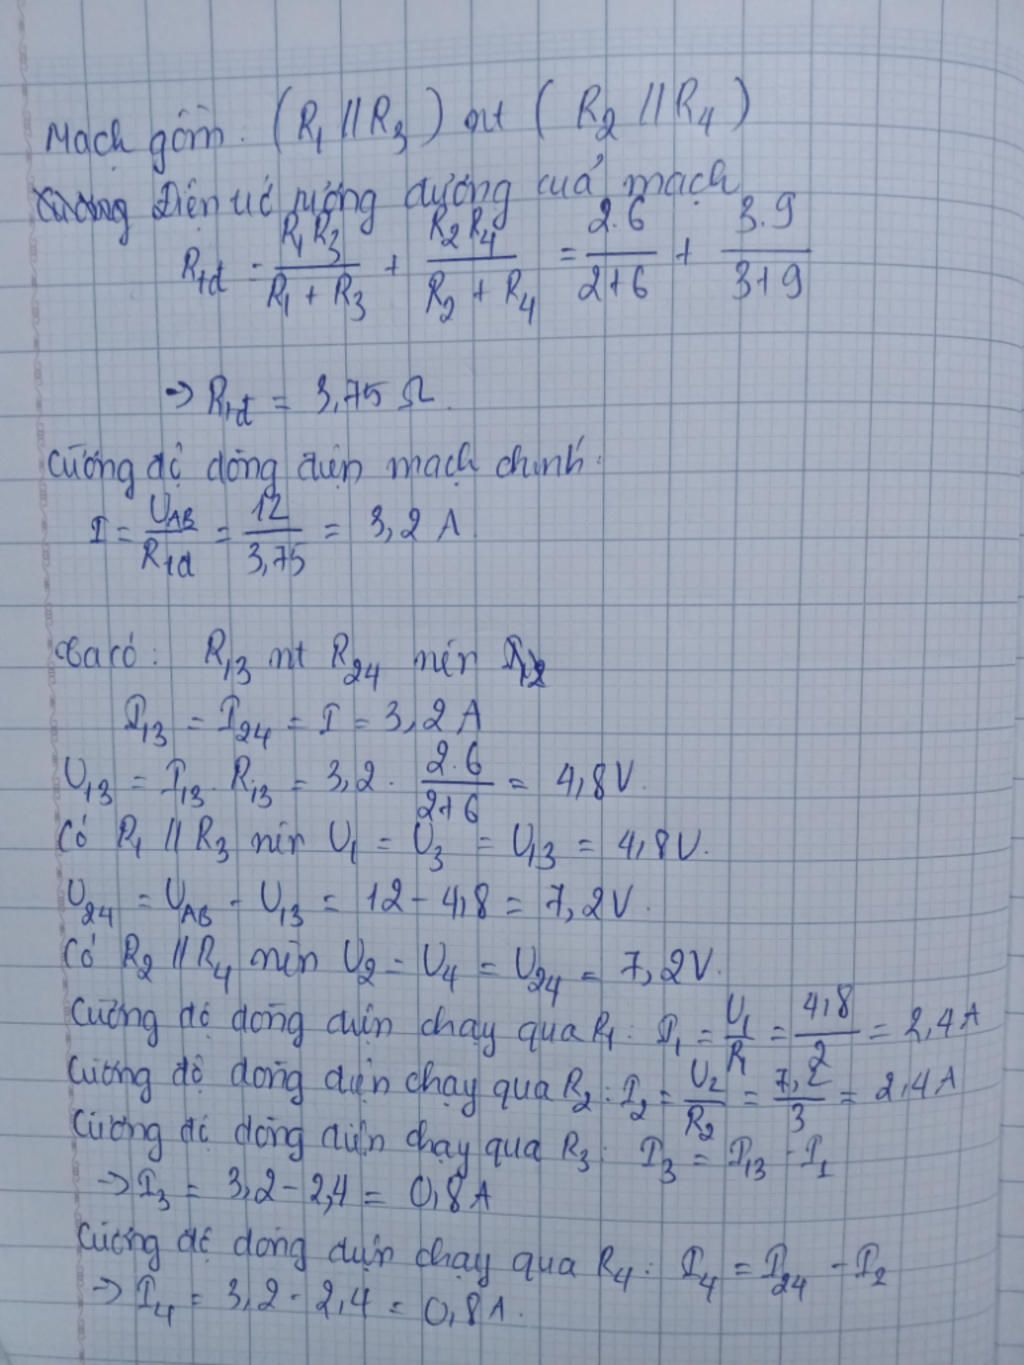 Mạch gồm: (R₁ // R₃) nt (R₂ // R₄)
Điện trở tương đương của mạch
Rtđ = R₁R₃/(R₁ + R₃) + R₂R₄/(R₂ + R₄) = 2.6/(2+6) + 3.9/(3+9)
→ Rtđ = 3,75 Ω.
Cường độ dòng điện mạch chính:
I = U_AB/Rtđ = 12/3,75 = 3,2 A
Ta có: R₁₃ nt R₂₄ nên
I₁₃ = I₂₄ = I = 3,2 A
U₁₃ = I₁₃ . R₁₃ = 3,2 . 2.6/(2+6) = 4,8 V.
Có R₁ // R₃ nên U₁ = U₃ = U₁₃ = 4,8 V.
U₂₄ = U_AB - U₁₃ = 12 - 4,8 = 7,2 V.
Có R₂ // R₄ nên U₂ = U₄ = U₂₄ = 7,2 V.
Cường độ dòng điện chạy qua R₁: I₁ = U₁/R₁ = 4,8/2 = 2,4 A
Cường độ dòng điện chạy qua R₂: I₂ = U₂/R₂ = 7,2/3 = 2,4 A
Cường độ dòng điện chạy qua R₃: I₃ = I₁₃ - I₁
→ I₃ = 3,2 - 2,4 = 0,8 A
Cường độ dòng điện chạy qua R₄: I₄ = I₂₄ - I₂
→ I₄ = 3,2 - 2,4 = 0,8 A.